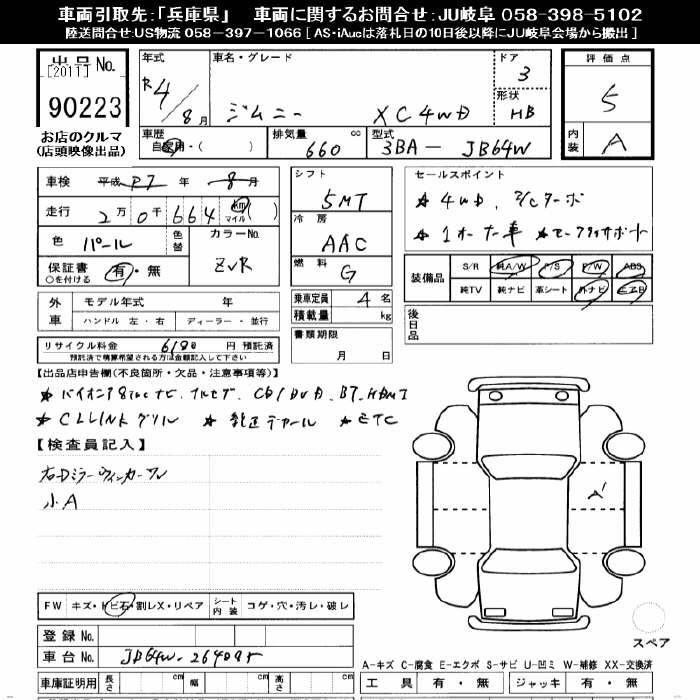 車両引取先:「兵庫県」 車両に関するお問合せ:JU岐阜 058-398-5102
陸送問合せ:US物流 058-397-1066 [ AS・iAucは落札日の10日後以降にJU岐阜会場から搬出 ]
出品 No. [2011] 90223
お店のクルマ
(店頭映像出品)
年式 R4/8月
車名・グレード ジムニー XC4WD
ドア 3
形状 HB
評価点 5
内装 A
車歴 自家用・( )
排気量 660 cc
型式 3BA-JB64W
車検 平成 R7 年 8月
走行 2万0千664 km マイル ( )
色 パール 色替
カラーNo. ZVR
保証書 ○を付ける 有・無
シフト 5MT
冷房 AAC
燃料 G
乗車定員 4名
積載量 kg
書類期限 月 日
セールスポイント
★ 4WD. I/Cターボ
★ 1オーナー車 ★セーフティサポート
装備品 S/R 純A/W P/S P/W ABS
純TV 純ナビ 革シート 外ナビ エアB
後日品
外車 モデル年式 年
ハンドル 左・右 ディーラー・並行
リサイクル料金 6180 円 預託済
預託済で精算希望される方は金額記入して下さい
【出品店申告欄(不良箇所・欠品・注意事項等)】
★ パイオニア8incナビ. フルセグ. CD/DVD. BT. HDMI
★ CLLINKグリル ★ 純正デカール ★ ETC
【検査員記入】
右Dミラーウィンカーワレ
小A
A'
FW キズ・トビ石・割レX・リペア シート内装 コゲ・穴・汚レ・破レ
登録 No.
車台 No. JB64W-264085
スペア
A-キズ C-腐食 E-エクボ S-サビ U-凹ミ W-補修 XX-交換済
車庫証明用 長さ cm 幅 cm 高さ cm 工具 有・無 ジャッキ 有・無